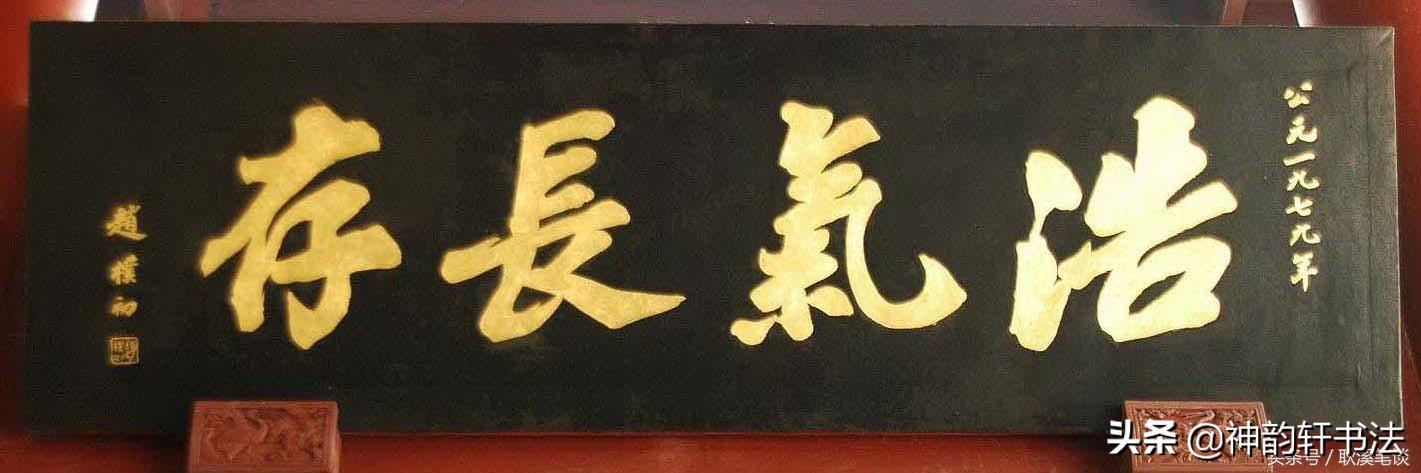 公元一九七九年
浩氣長存
趙樸初
头条 @神韵轩书法
头条号 / 耿溪笔谈